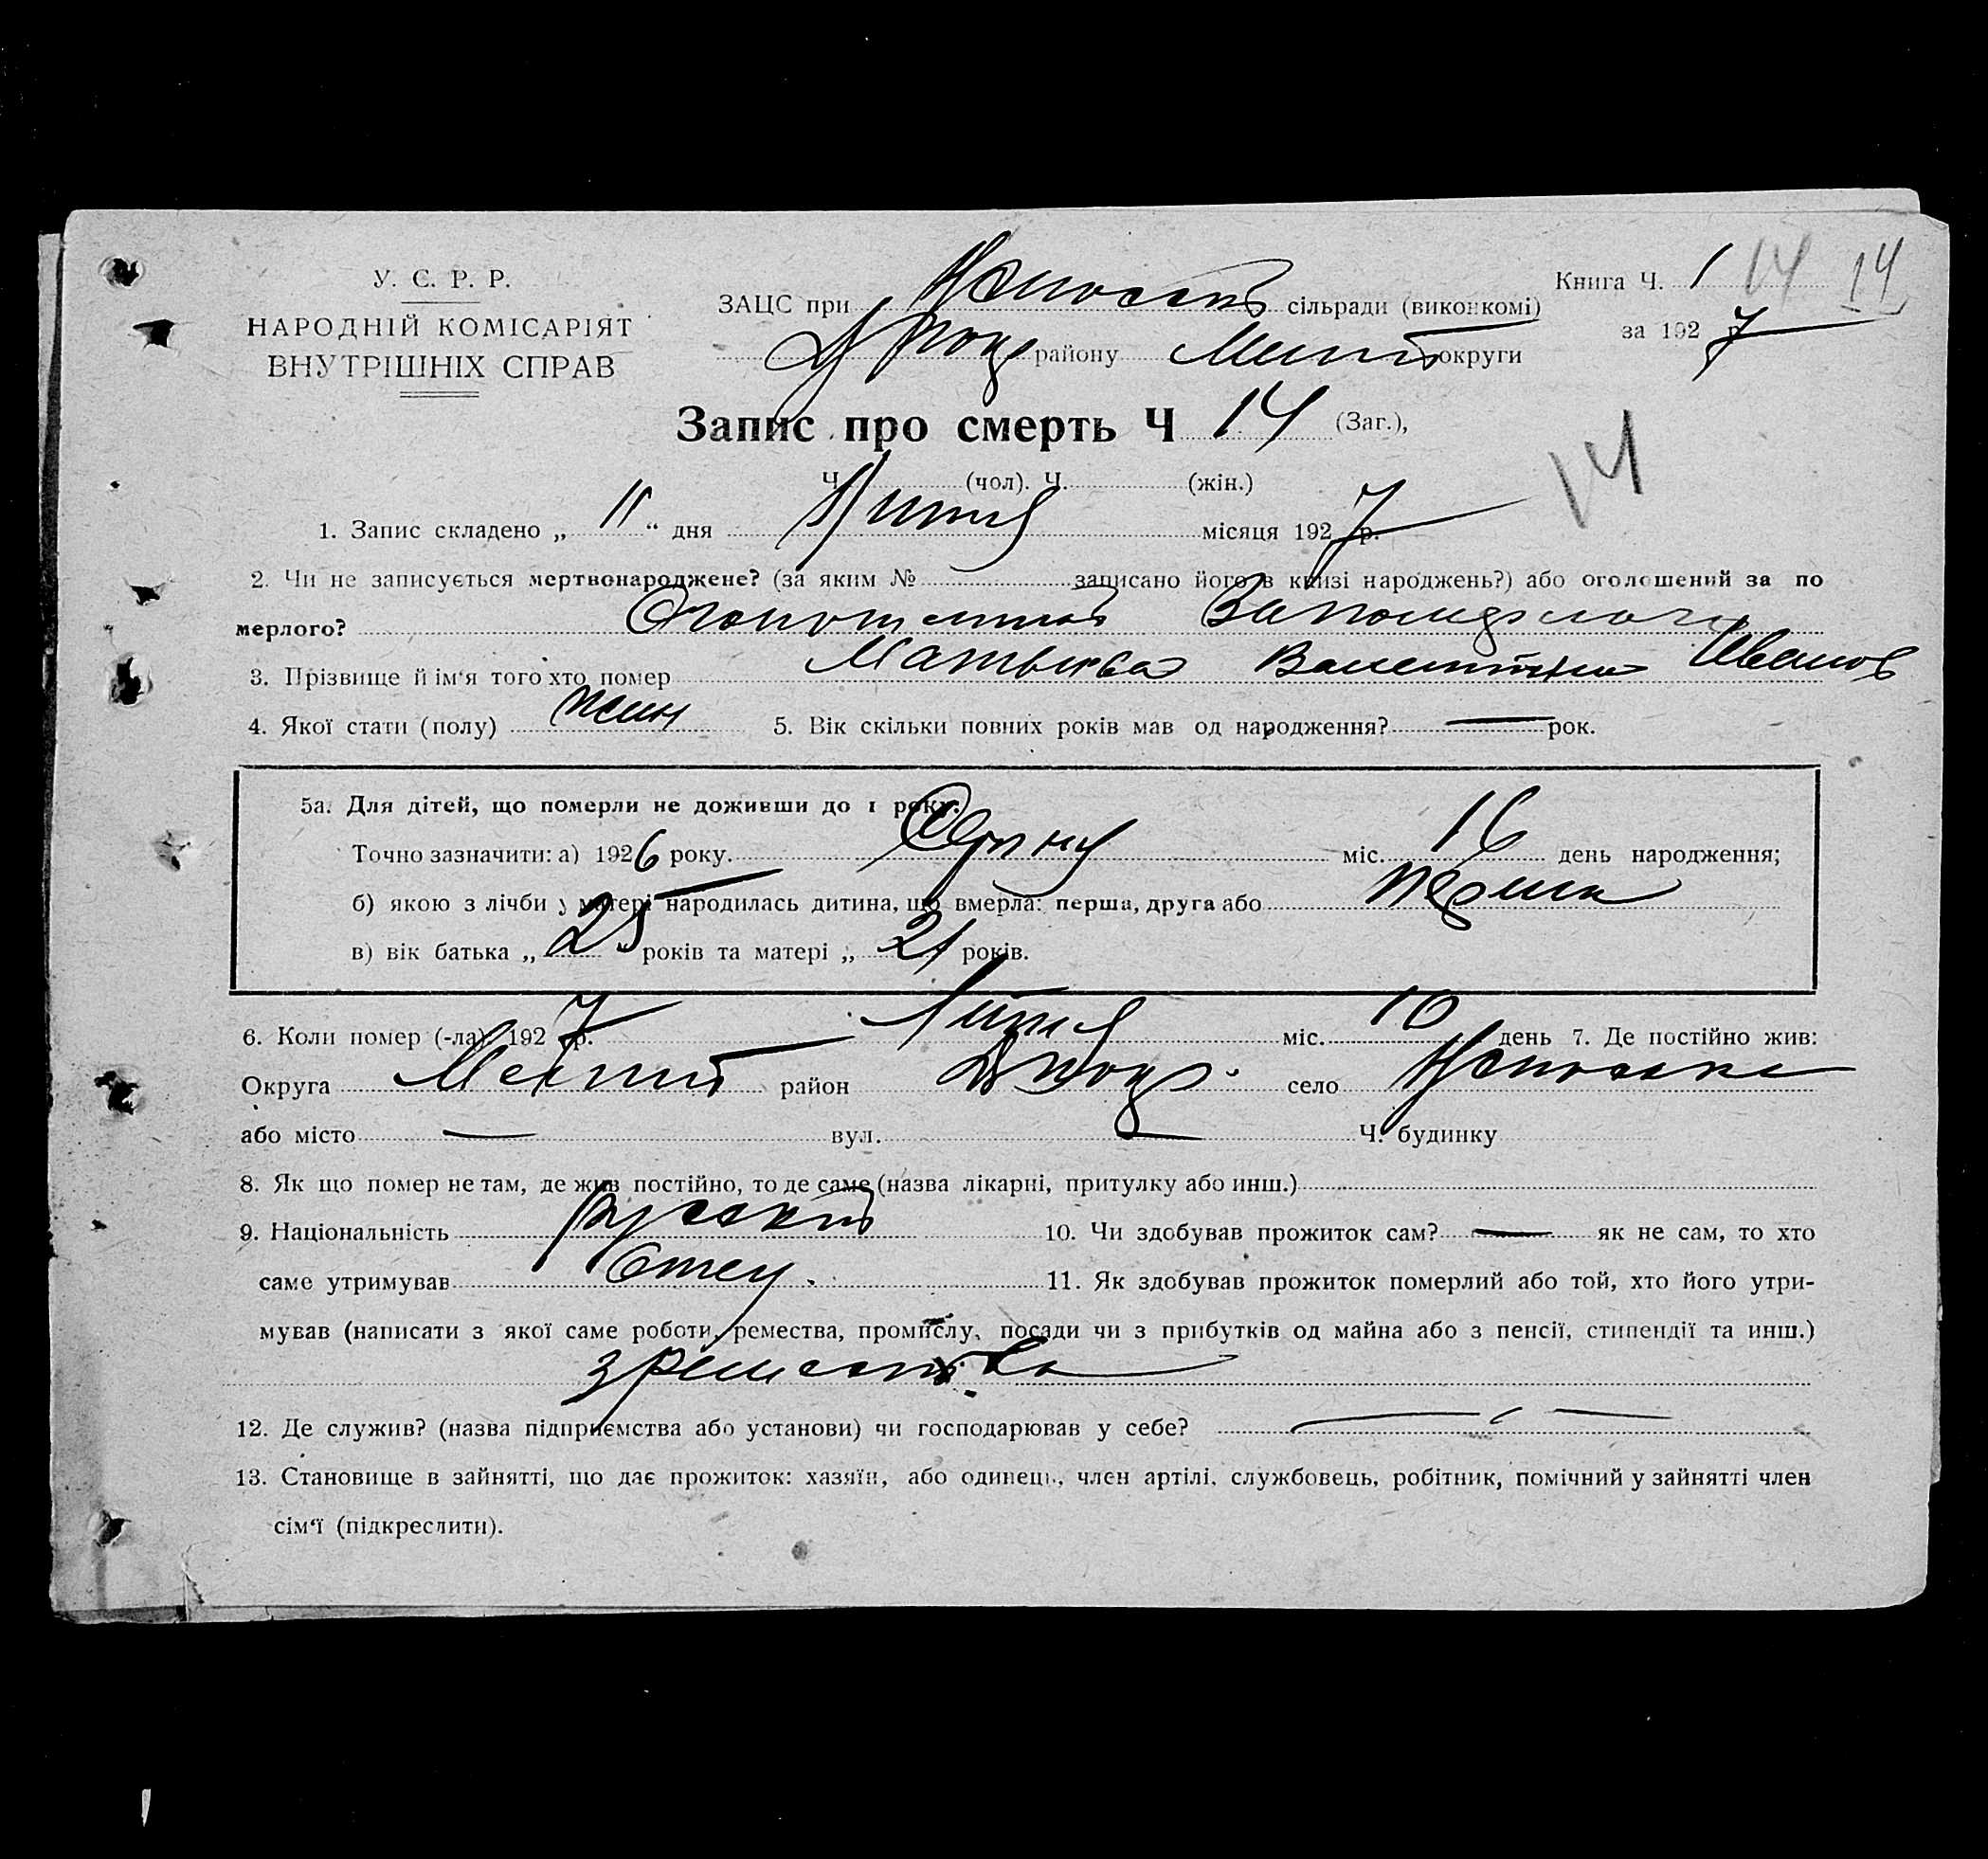 У. С. Р. Р.
НАРОДНІЙ КОМІСАРІЯТ
ВНУТРІШНІХ СПРАВ
Книга Ч. 1 14 14
за 1927 р.
ЗАЦС при сільради (виконкомі)
району округи
Запис про смерть Ч 14 (Заг.),
14
Ч. (чол). Ч. (жін.)
1. Запис складено „ 11 “ дня Липня місяця 1927 р.
2. Чи не записується мертвонароджене? (за яким № записано його в книзі народжень?) або оголошений за по
мерлого?
3. Прізвище й ім'я того хто помер Валентина Иванов
4. Якої стати (полу) жин 5. Вік скільки повних років мав од народження? — рок.
5а. Для дітей, що померли не доживши до 1 року.
Точно зазначити: а) 1926 року. Серпня міс. 16 день народження;
б) якою з лічби у матері народилась дитина, що вмерла: перша, друга або перша
в) вік батька „ 25 років та матері „ 21 років.
6. Коли помер (-ла) 1927 р. Липня міс. 10 день 7. Де постійно жив:
Округа район село
або місто — вул. — Ч. будинку
8. Як що помер не там, де жив постійно, то де саме (назва лікарні, притулку або инш.)
9. Національність русский 10. Чи здобував прожиток сам? — як не сам, то хто
саме утримував Отец. 11. Як здобував прожиток померлий або той, хто його утри-
мував (написати з якої саме роботи, ремества, промислу, посади чи з прибутків од майна або з пенсії, стипендії та инш.)
з ремества
12. Де служив? (назва підприємства або установи) чи господарював у себе? —
13. Становище в зайнятті, що дає прожиток: хазяїн, або одинець, член артілі, службовець, робітник, помічний у зайнятті член
сім'ї (підкреслити).